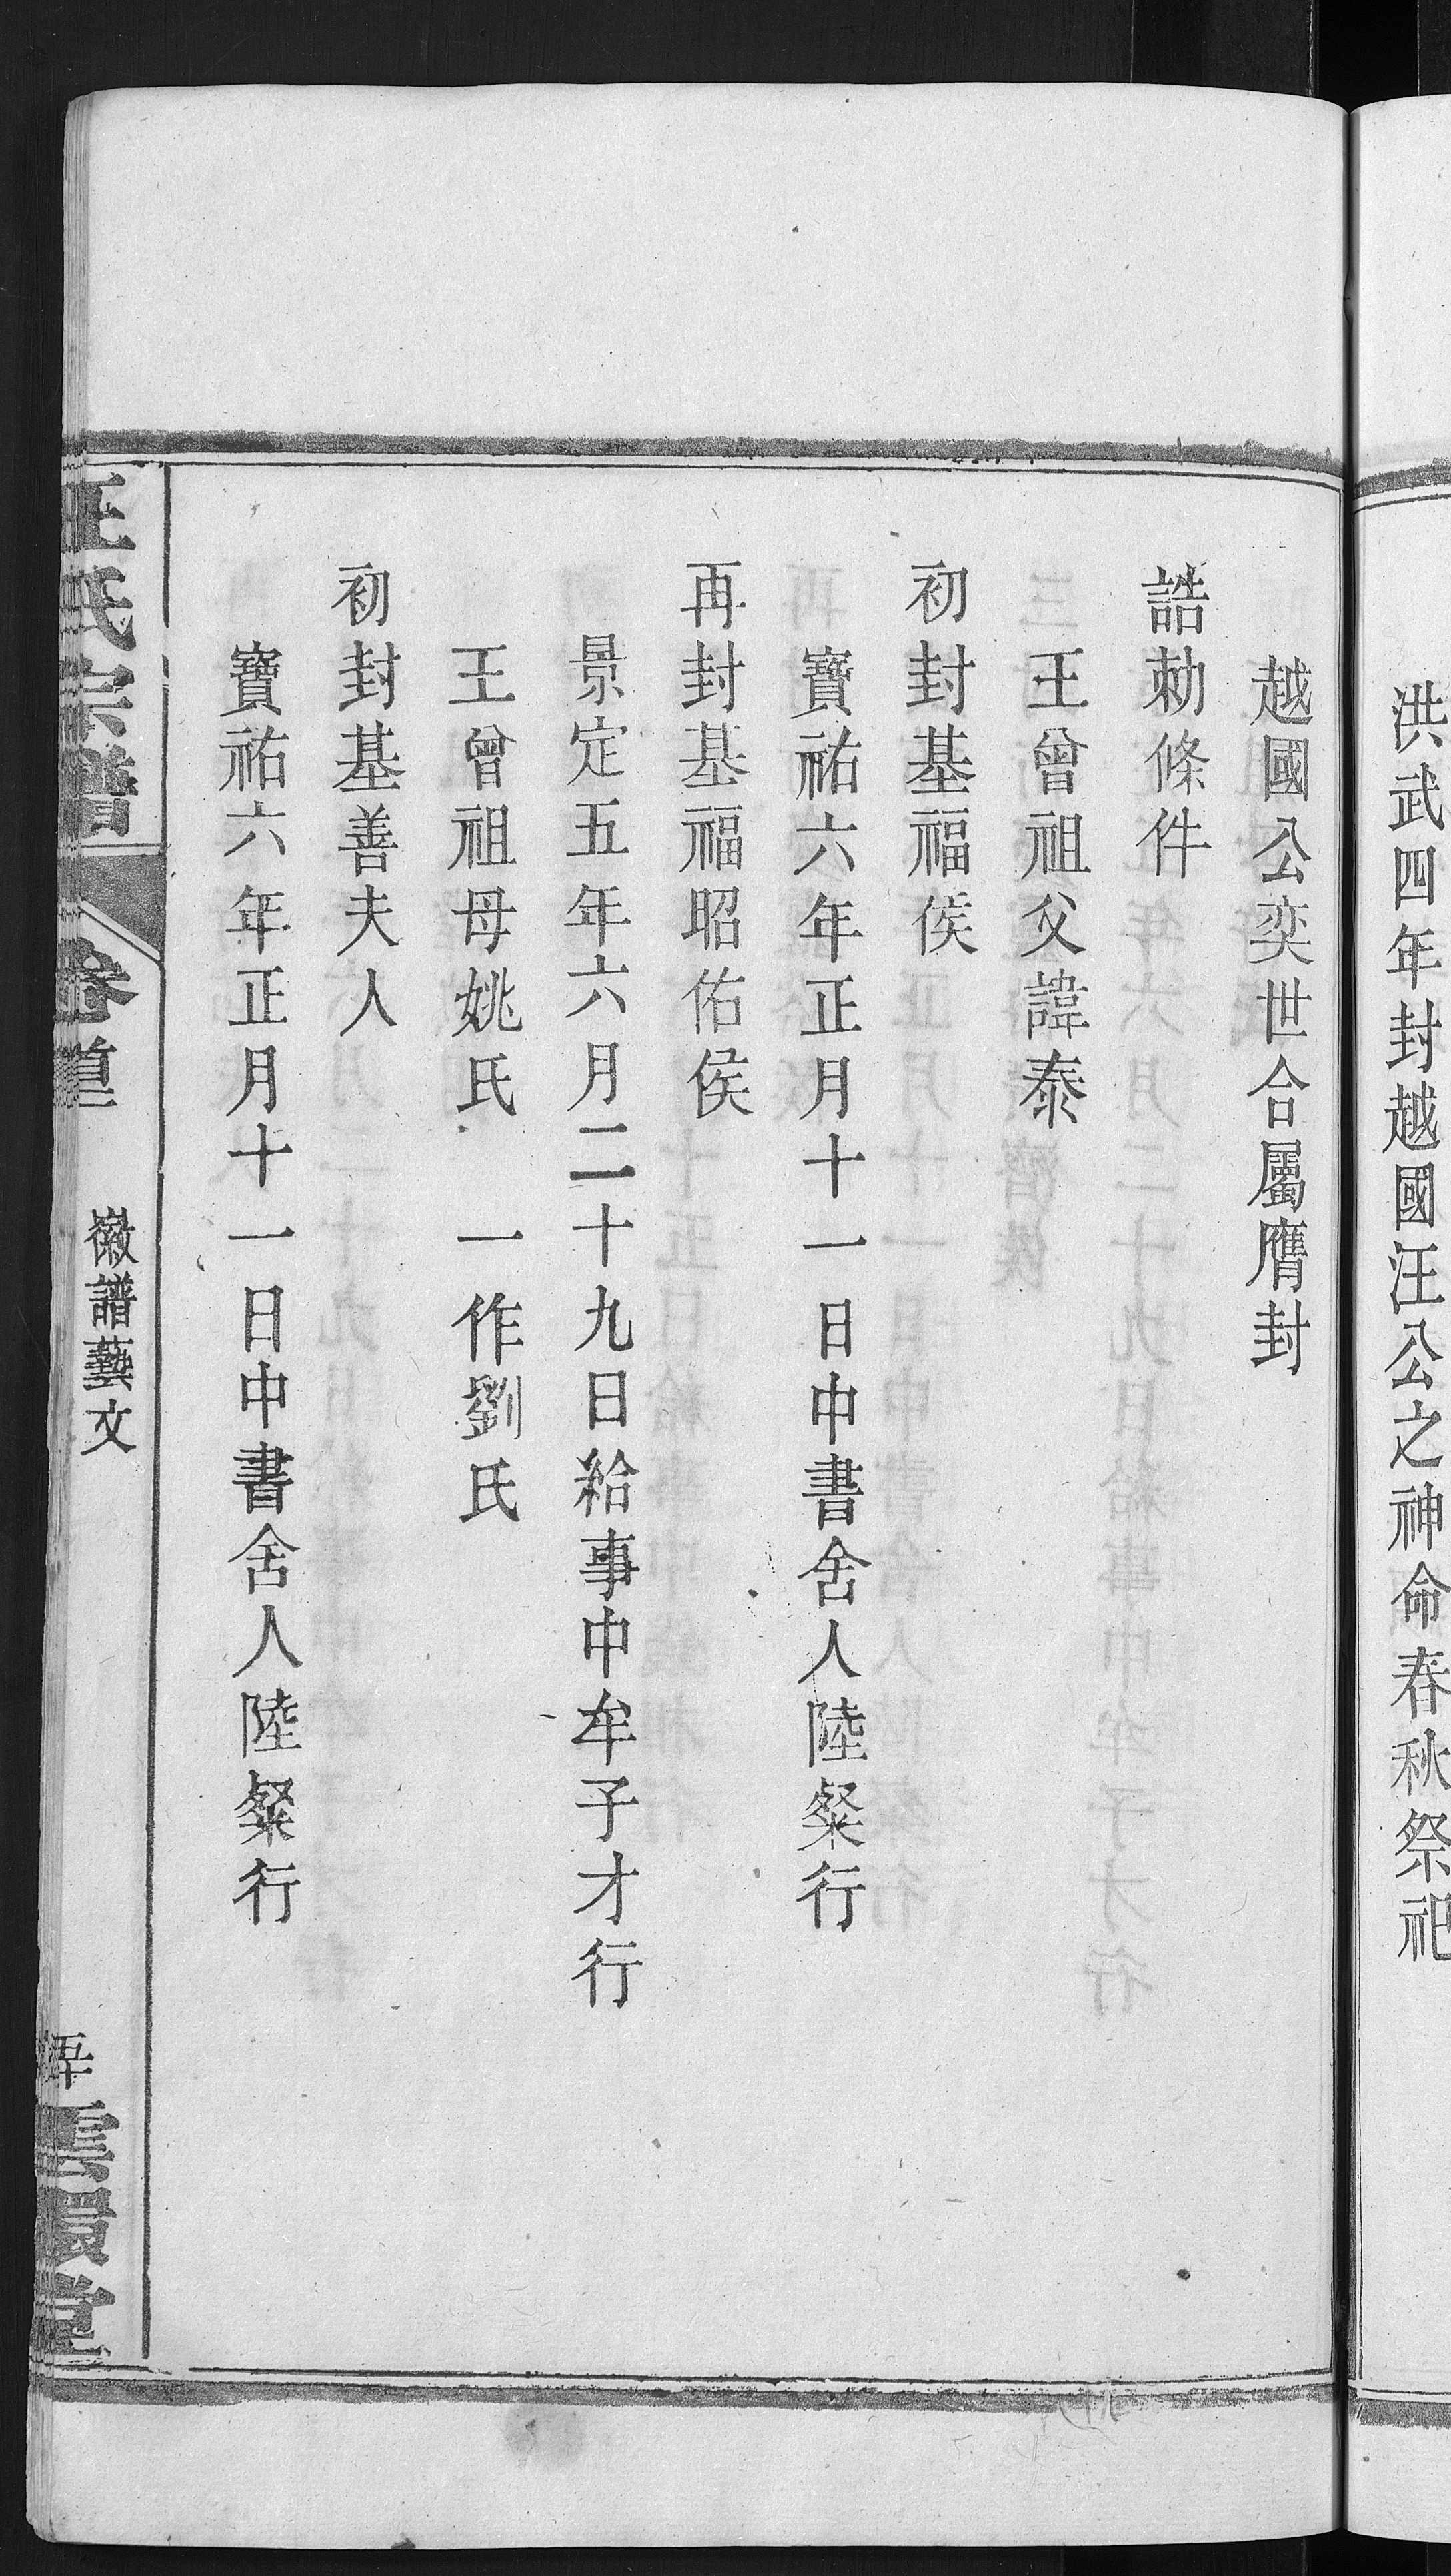 洪武四年封越國汪公之神命春秋祭祀
越國公奕世合屬膺封
誥勅條件
王曾祖父諱泰
初封基福侯
寶祐六年正月十一日中書舍人陸粲行
再封基福昭佑侯
景定五年六月二十九日給事中牟子才行
王曾祖母姚氏 一作劉氏
初封基善夫人
寶祐六年正月十一日中書舍人陸粲行
氏宗譜 卷首 徽譜藝文 五十 雲 堂